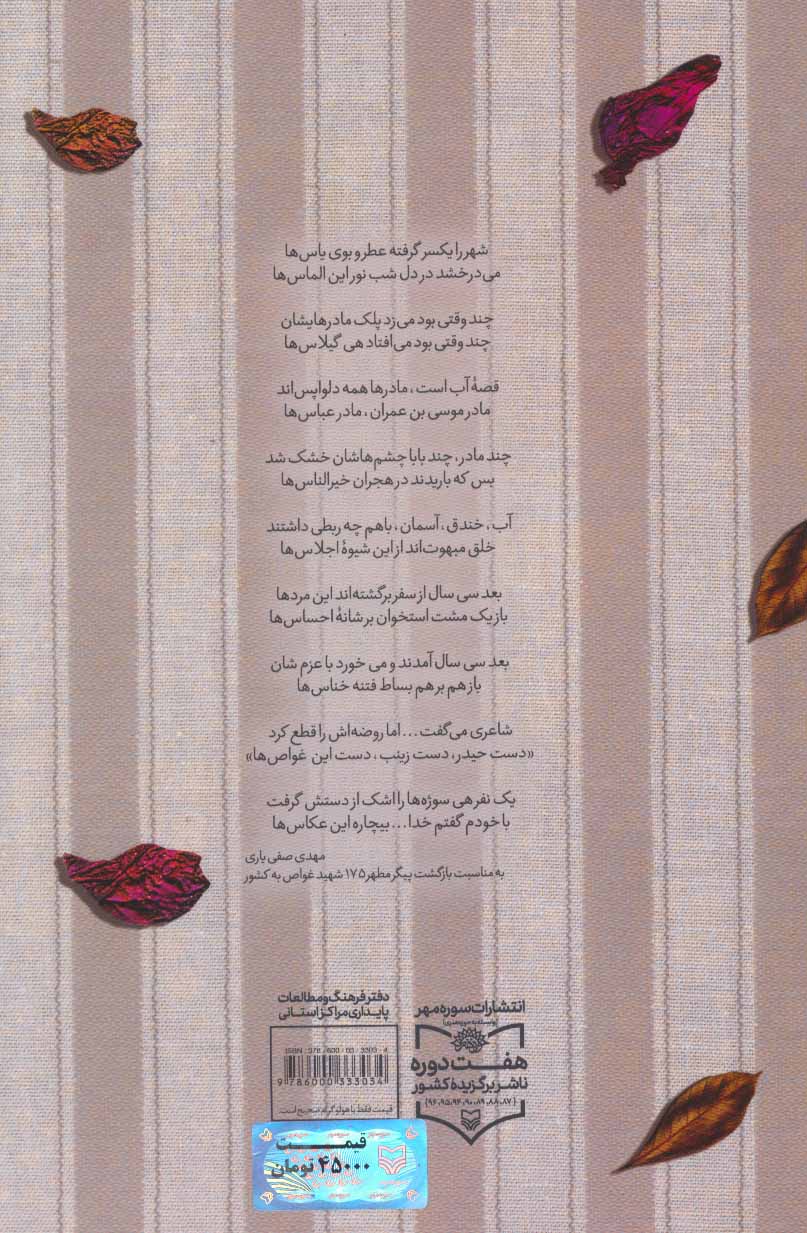 شهر را یکسر گرفته عطر و بوی یاس‌ها
می‌درخشد در دل شب نور این الماس‌ها
چند وقتی بود می‌زد پلک مادرهایشان
چند وقتی بود می‌افتاد هی گیلاس‌ها
قصهٔ آب است، مادرها همه دلواپس‌اند
مادر موسی بن عمران، مادر عباس‌ها
چند مادر، چند بابا چشم‌هاشان خشک شد
بس که باریدند در هجران خیرالناس‌ها
آب، خندق، آسمان، باهم چه ربطی داشتند
خلق مبهوت‌اند از این شیوهٔ اجلاس‌ها
بعد سی سال از سفر برگشته‌اند این مردها
باز یک مشت استخوان بر شانهٔ احساس‌ها
بعد سی سال آمدند و می خورد با عزم شان
باز هم بر هم بساط فتنه خناس‌ها
شاعری می‌گفت... اما روضه‌اش را قطع کرد
«دست حیدر، دست زینب، دست این غواص‌ها»
یک نفر هی سوژه‌ها را اشک از دستش گرفت
با خودم گفتم خدا... بیچاره این عکاس‌ها
مهدی صفی یاری
به مناسبت بازگشت پیکر مطهر ۱۷۵ شهید غواص به کشور
دفتر فرهنگ و مطالعات
پایداری مراکز استانی
انتشارات سوره مهر
(وابسته به حوزه هنری)
هفت دوره
ناشر برگزیدهٔ کشور
(۸۷، ۸۸، ۸۹، ۹۰، ۹۴، ۹۵، ۹۶)
ISBN: 978-600-03-3303-4
9 786000 333034
قیمت فقط با هولوگرام صحیح است.
قیمت
۴۵۰۰۰ تومان